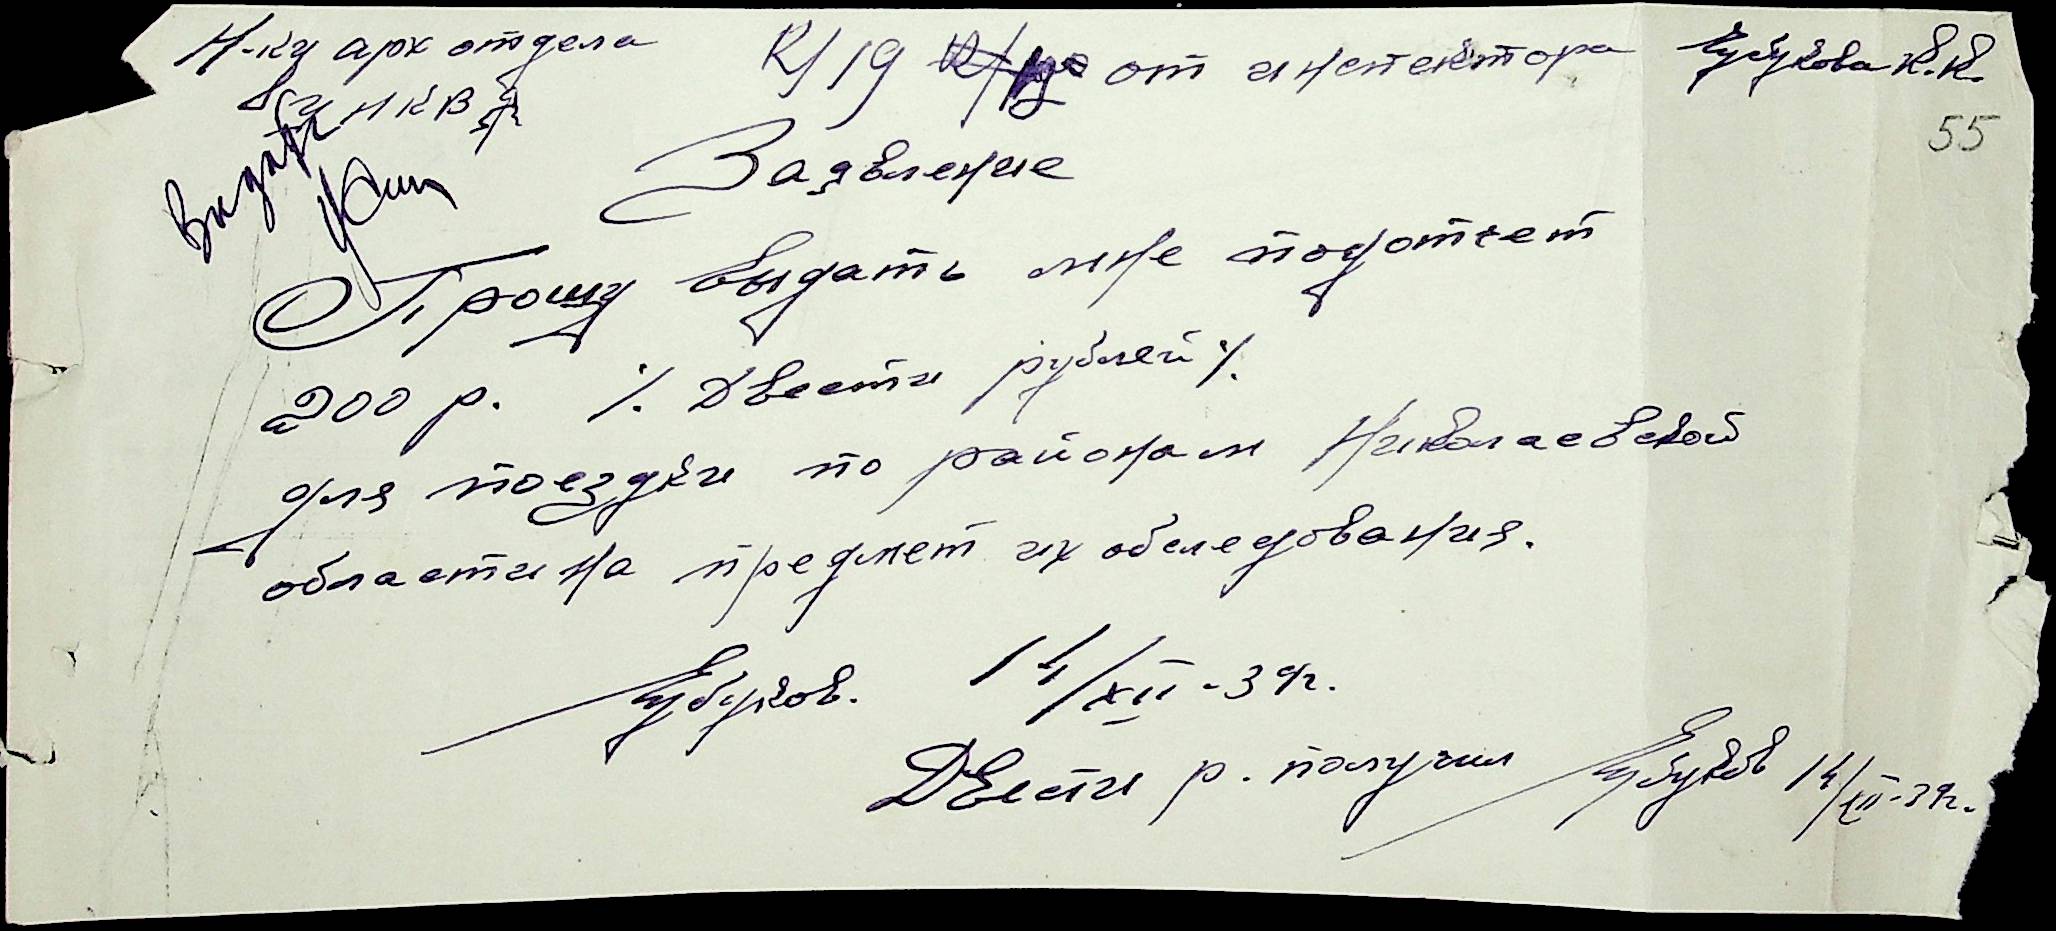 Н-ку арх отдела К/19 от инспектора Чубукова К.К.
УНКВД
55
Выдать
Заявление
Прошу выдать мне подотчет
200 р. ٪ Двести рублей ٪
для поездки по районам Николаевской
области на предмет их обследования.
Чубуков. 14/XII-39г.
Двести р. получил Чубуков 14/XII-39г.